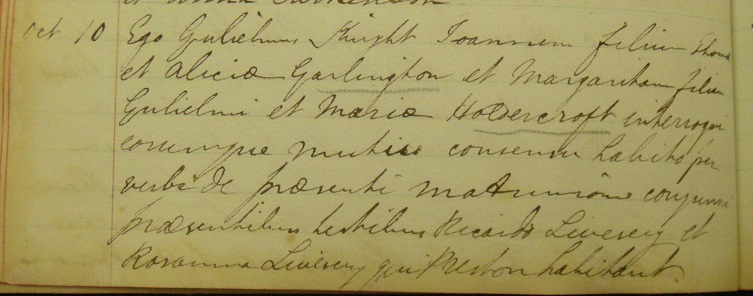 Oct 10 Ego Gulielmus Knight Joannem filium Thomæ
et Aliciæ Garlington et Margaritam filiam
Gulielmi et Mariæ Holdercroft interrogavi
eorumque mutuo consensu habito per
verba de præsenti matrimonio conjunxi
præsentibus testibus Ricardo Livesey et
Rosanna Livesey qui Preston habitant.